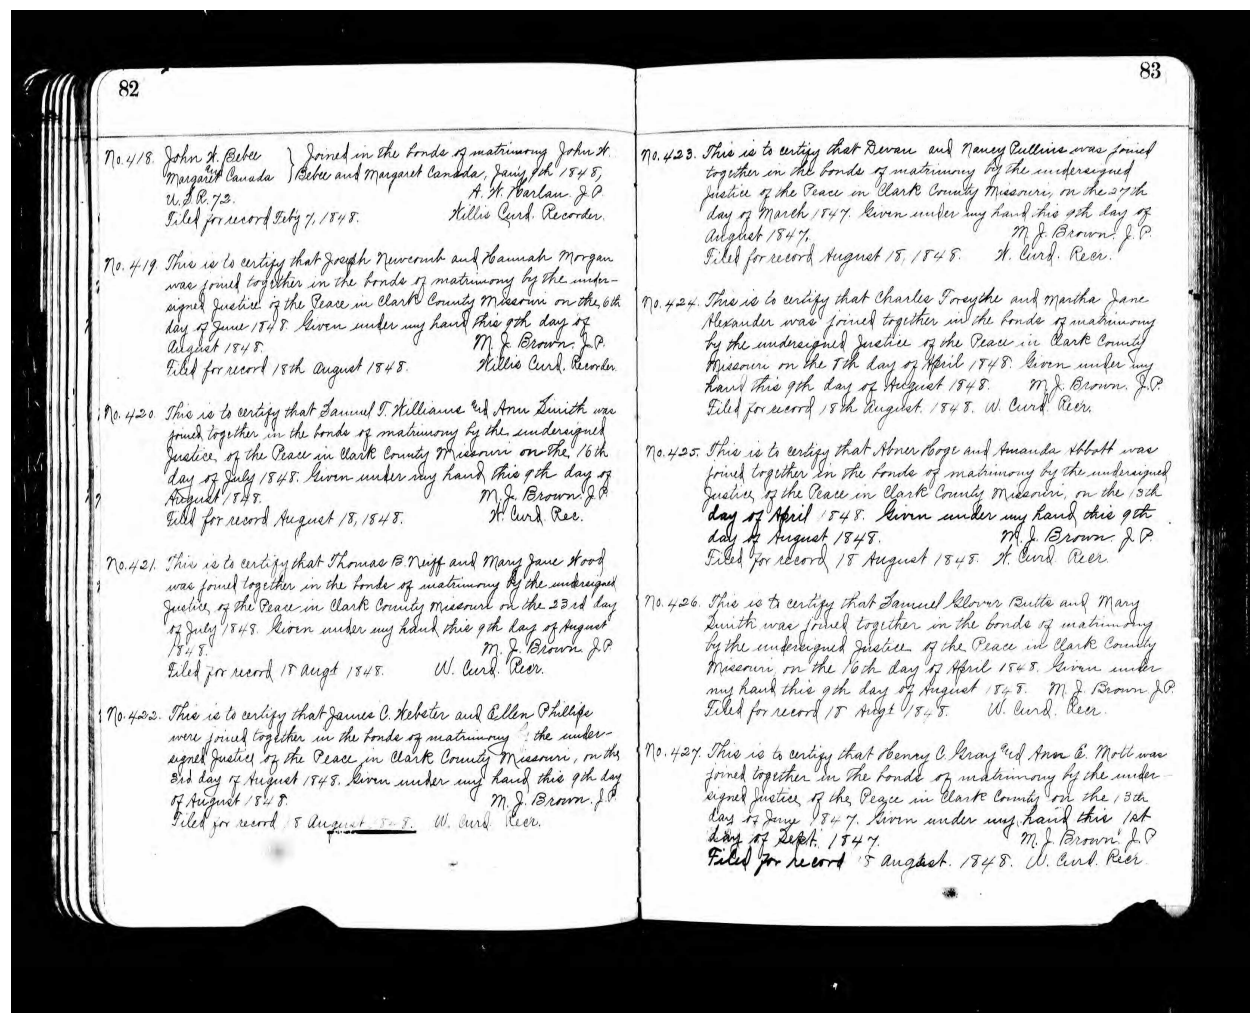 82
No. 418. John W. Bebee } Joined in the bonds of matrimony John W.
and Margaret Canada } Bebee and Margaret Canada, Jany 9th 1848,
U.S.R. 72. A. W. Harlan J.P.
Filed for record Feby 7, 1848. Willis Curd. Recorder.
No. 419. This is to certify that Joseph Newcomb and Hannah Morgan
was joined together in the bonds of matrimony by the under-
signed Justice of the Peace in Clark County Missouri on the 6th
day of June 1848. Given under my hand this 9th day of
August 1848. M. J. Brown. J.P.
Filed for record 18th August 1848. Willis Curd. Recorder.
No. 420. This is to certify that Samuel T. Williams and Ann Smith was
joined together in the bonds of matrimony by the undersigned
Justice of the Peace in Clark County Missouri on the 16th
day of July 1848. Given under my hand this 9th day of
August 1848. M. J. Brown. J.P.
Filed for record August 18, 1848. W. Curd. Rec.
No. 421. This is to certify that Thomas B. Neiff and Mary Jane Wood
was joined together in the bonds of matrimony by the undersigned
Justice of the Peace in Clark County Missouri on the 23rd day
of July 1848. Given under my hand this 9th day of August
1848. M. J. Brown. J.P
Filed for record 18 Augt 1848. W. Curd. Recr.
No. 422. This is to certify that James C. Webster and Ellen Phillips
were joined together in the bonds of matrimony the under-
signed Justice of the Peace in Clark County Missouri, on the
3rd day of August 1848. Given under my hand this 9th day
of August 1848. M. J. Brown. J.P.
Filed for record 18 August 1848. W. Curd Recr.
83
No. 423. This is to certify that Devan and Nancy Pullins was joined
together in the bonds of matrimony by the undersigned
Justice of the Peace in Clark County Missouri, on the 27th
day of March 1847. Given under my hand this 9th day of
August 1847. M. J. Brown. J.P.
Filed for record August 18, 1848. W. Curd. Recr.
No. 424. This is to certify that Charles Forsythe and Martha Jane
Alexander was joined together in the bonds of matrimony
by the undersigned Justice of the Peace in Clark County
Missouri on the 8th day of April 1848. Given under my
hand this 9th day of August 1848. M. J. Brown. J.P.
Filed for record 18th August. 1848. W. Curd. Recr.
No. 425. This is to certify that Abner Hoge and Amanda Abbott was
joined together in the bonds of matrimony by the undersigned
Justice of the Peace in Clark County Missouri, on the 13th
day of April 1848. Given under my hand this 9th
day of August 1848. M. J. Brown. J.P.
Filed for record 18 August 1848. W. Curd Recr.
No. 426. This is to certify that Samuel Glover Butts and Mary
Smith was joined together in the bonds of matrimony
by the undersigned Justice of the Peace in Clark County
Missouri, on the 16th day of April 1848. Given under
my hand this 9th day of August 1848. M. J. Brown J.P.
Filed for record 18 Augt 1848. W. Curd. Recr.
No. 427. This is to certify that Henry C. Gray and Ann E. Mott was
joined together in the bonds of matrimony by the under-
signed Justice of the Peace in Clark County on the 13th
day of June 1847. Given under my hand this 1st
day of Sept. 1847. M. J. Brown. J.P
Filed for record 18 August. 1848. W. Curd. Recr.